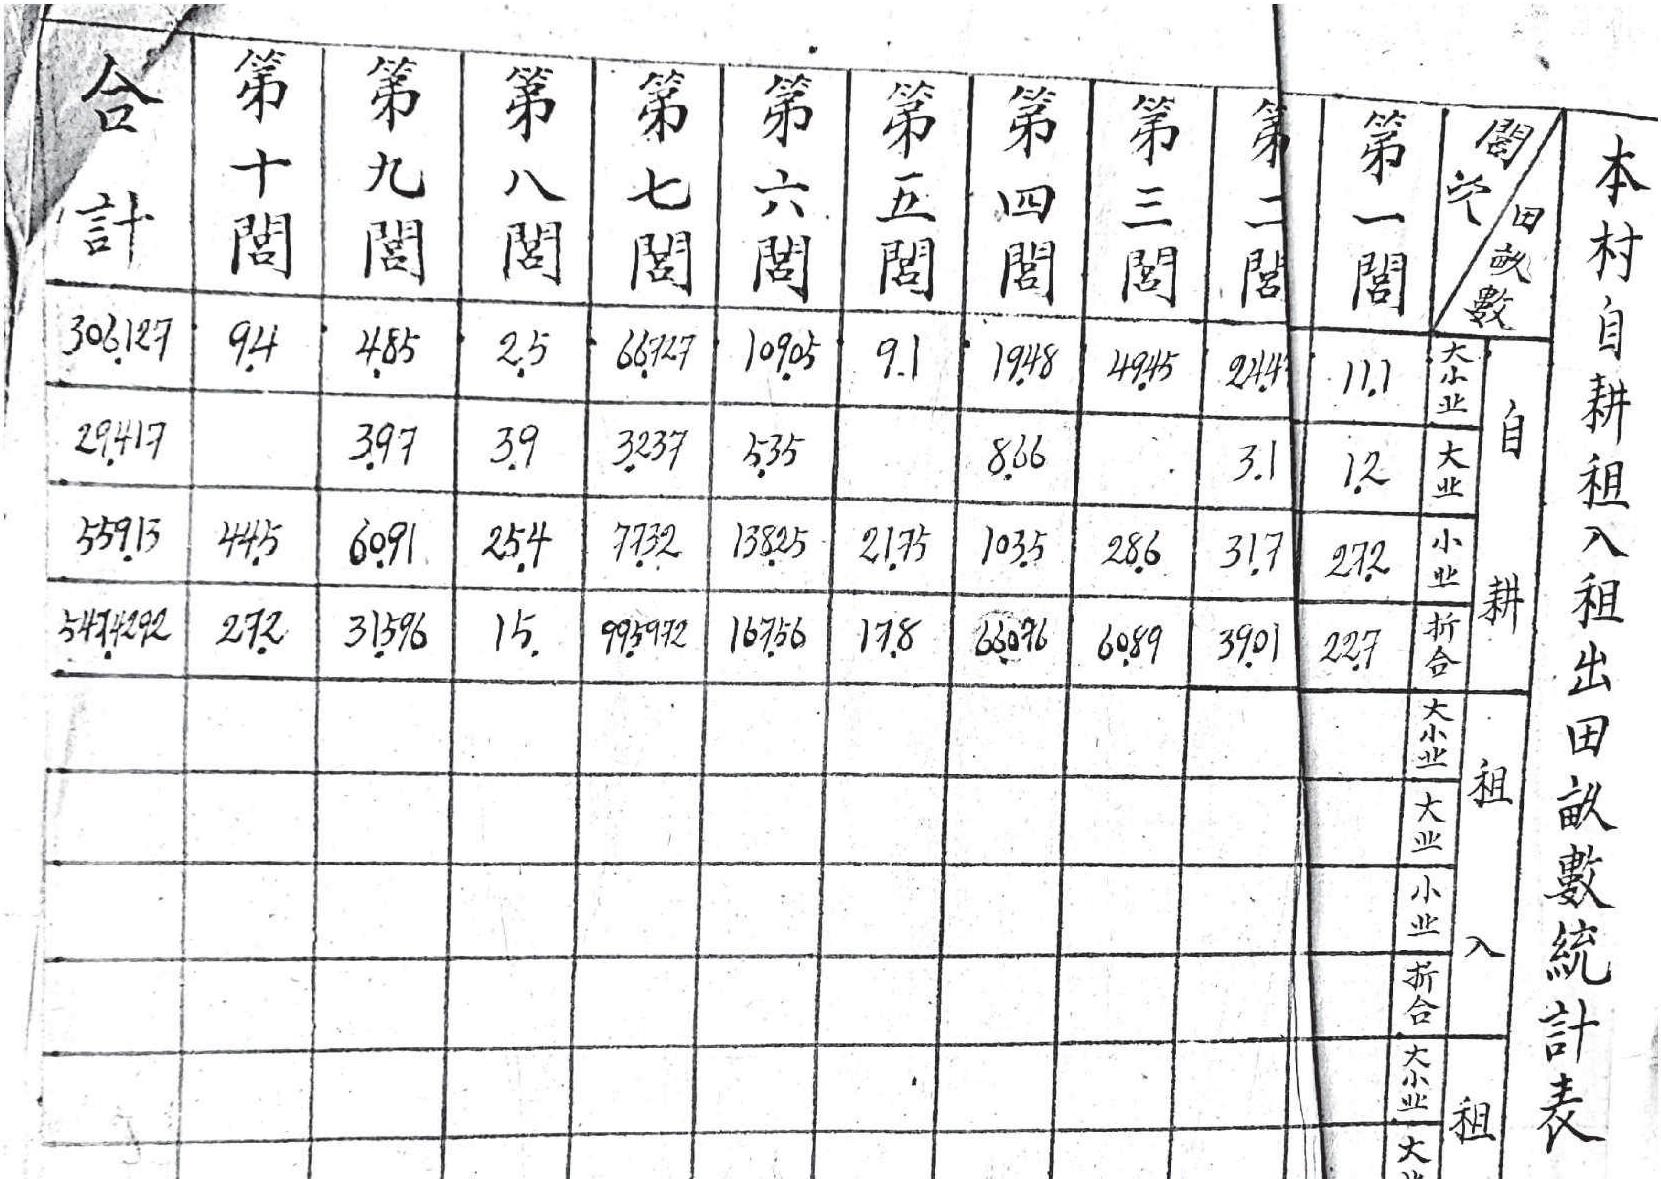 本村自耕租入租出田畝數統計表
閭次 田畝數 第一閭 第二閭 第三閭 第四閭 第五閭 第六閭 第七閭 第八閭 第九閭 第十閭 合計
自耕
大小业 11.1 24.4 49.45 19.48 9.1 109.05 66.727 2.5 4.85 9.4 306.127
大业 1.2 3.1 8.66 5.35 3.237 3.9 3.97 29.417
小业 27.2 31.7 28.6 103.5 21.75 138.25 77.32 25.4 60.91 44.5 559.13
折合 22.7 39.01 60.89 66.076 17.8 167.56 99.5972 15. 31.596 27.2 547.4292
租入
大小业
大业
小业
折合
租
大小业
大业